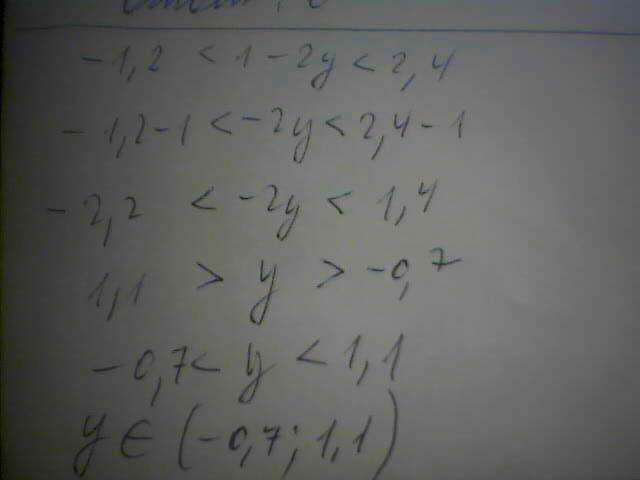 -1,2 < 1-2y < 2,4
-1,2-1 < -2y < 2,4-1
-2,2 < -2y < 1,4
1,1 > y > -0,7
-0,7 < y < 1,1
y ∈ (-0,7; 1,1)